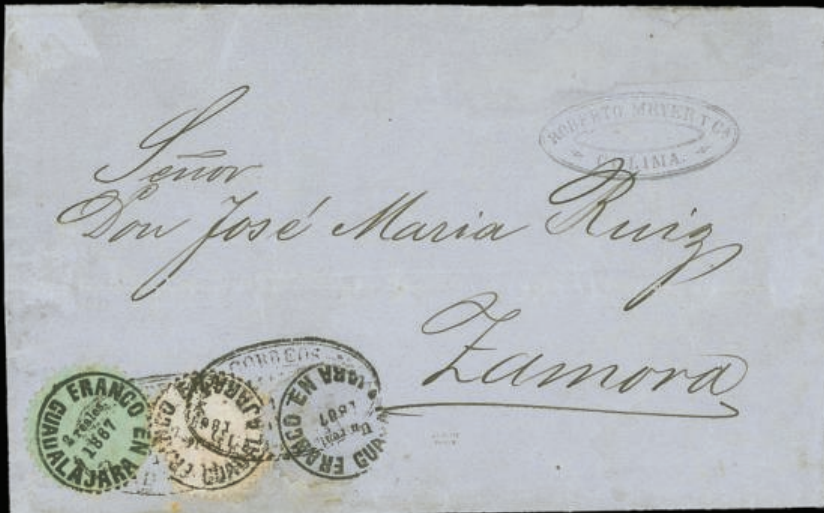 ROBERTO MEYER Y Ca
COLIMA.
Señor
Don José Maria Ruiz
Zamora
CORREOS
FRANCO EN GUADALAJARA
2 reales
1867
FRANCO EN GUADALAJARA
FRANCO EN GUADALAJARA
Un real
1867